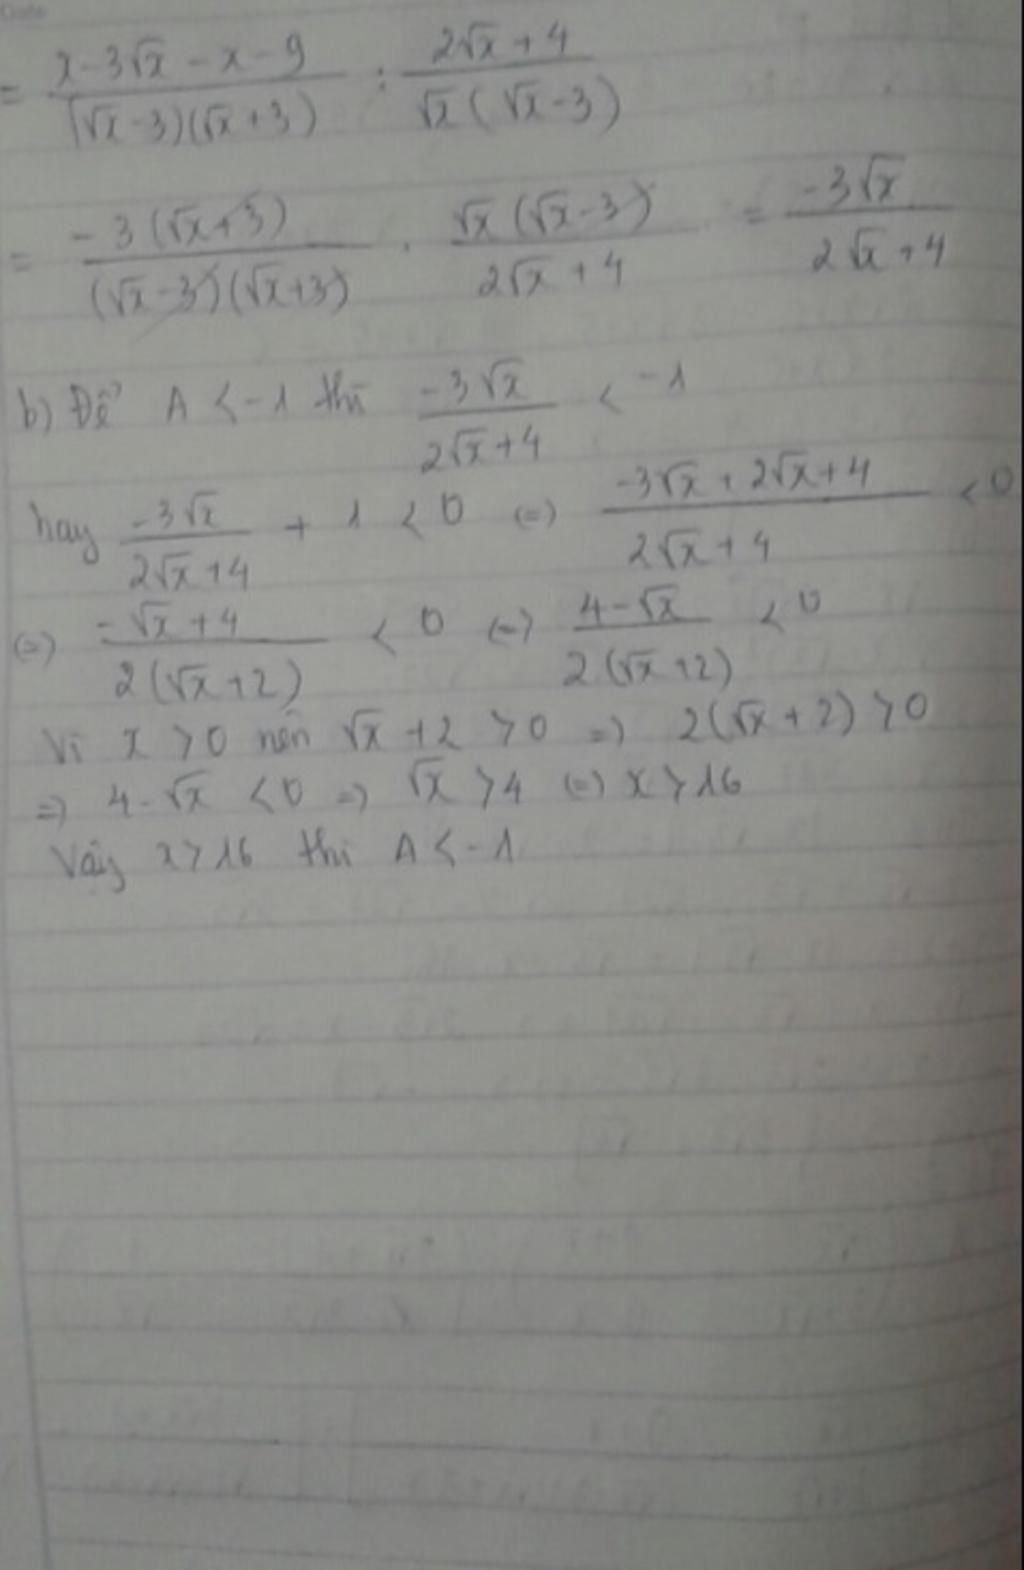 = (x-3√x - x - 9)/((√x-3)(√x+3)) : (2√x+4)/(√x(√x-3))
= (-3(√x+3))/((√x-3)(√x+3)) . (√x(√x-3))/(2√x+4) = (-3√x)/(2√x+4)
b) Để A < -1 thì (-3√x)/(2√x+4) < -1
hay (-3√x)/(2√x+4) + 1 < 0 (=) (-3√x+2√x+4)/(2√x+4) < 0
(=) (-√x+4)/(2(√x+2)) < 0 (=) (4-√x)/(2(√x+2)) < 0
Vì x > 0 nên √x+2 > 0 => 2(√x+2) > 0
=> 4-√x < 0 => √x > 4 (=) x > 16
Vậy x > 16 thì A < -1